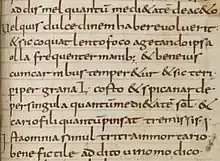 addis mel quantū mediaate deaceto
Vel quis dulce dinem haber & voluerit
& sic coquat lento foco agetando ipsa
olla frequenter man; & beneius
cum carnibus temperetur & sic teri
piper grana L, costo & spicanar de
per singula quantū mediaate sol. &
cariofili quantū pinsat tremissis i
Ista omnia simul trita in mortario
bene fictile addito vino modico